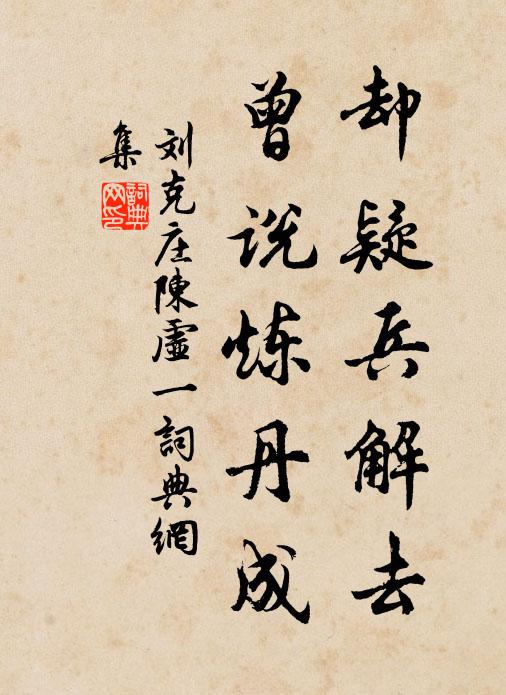 却疑兵解去
曾说炼丹成
刘克庄陳虛一詞典網
集
詞典網印